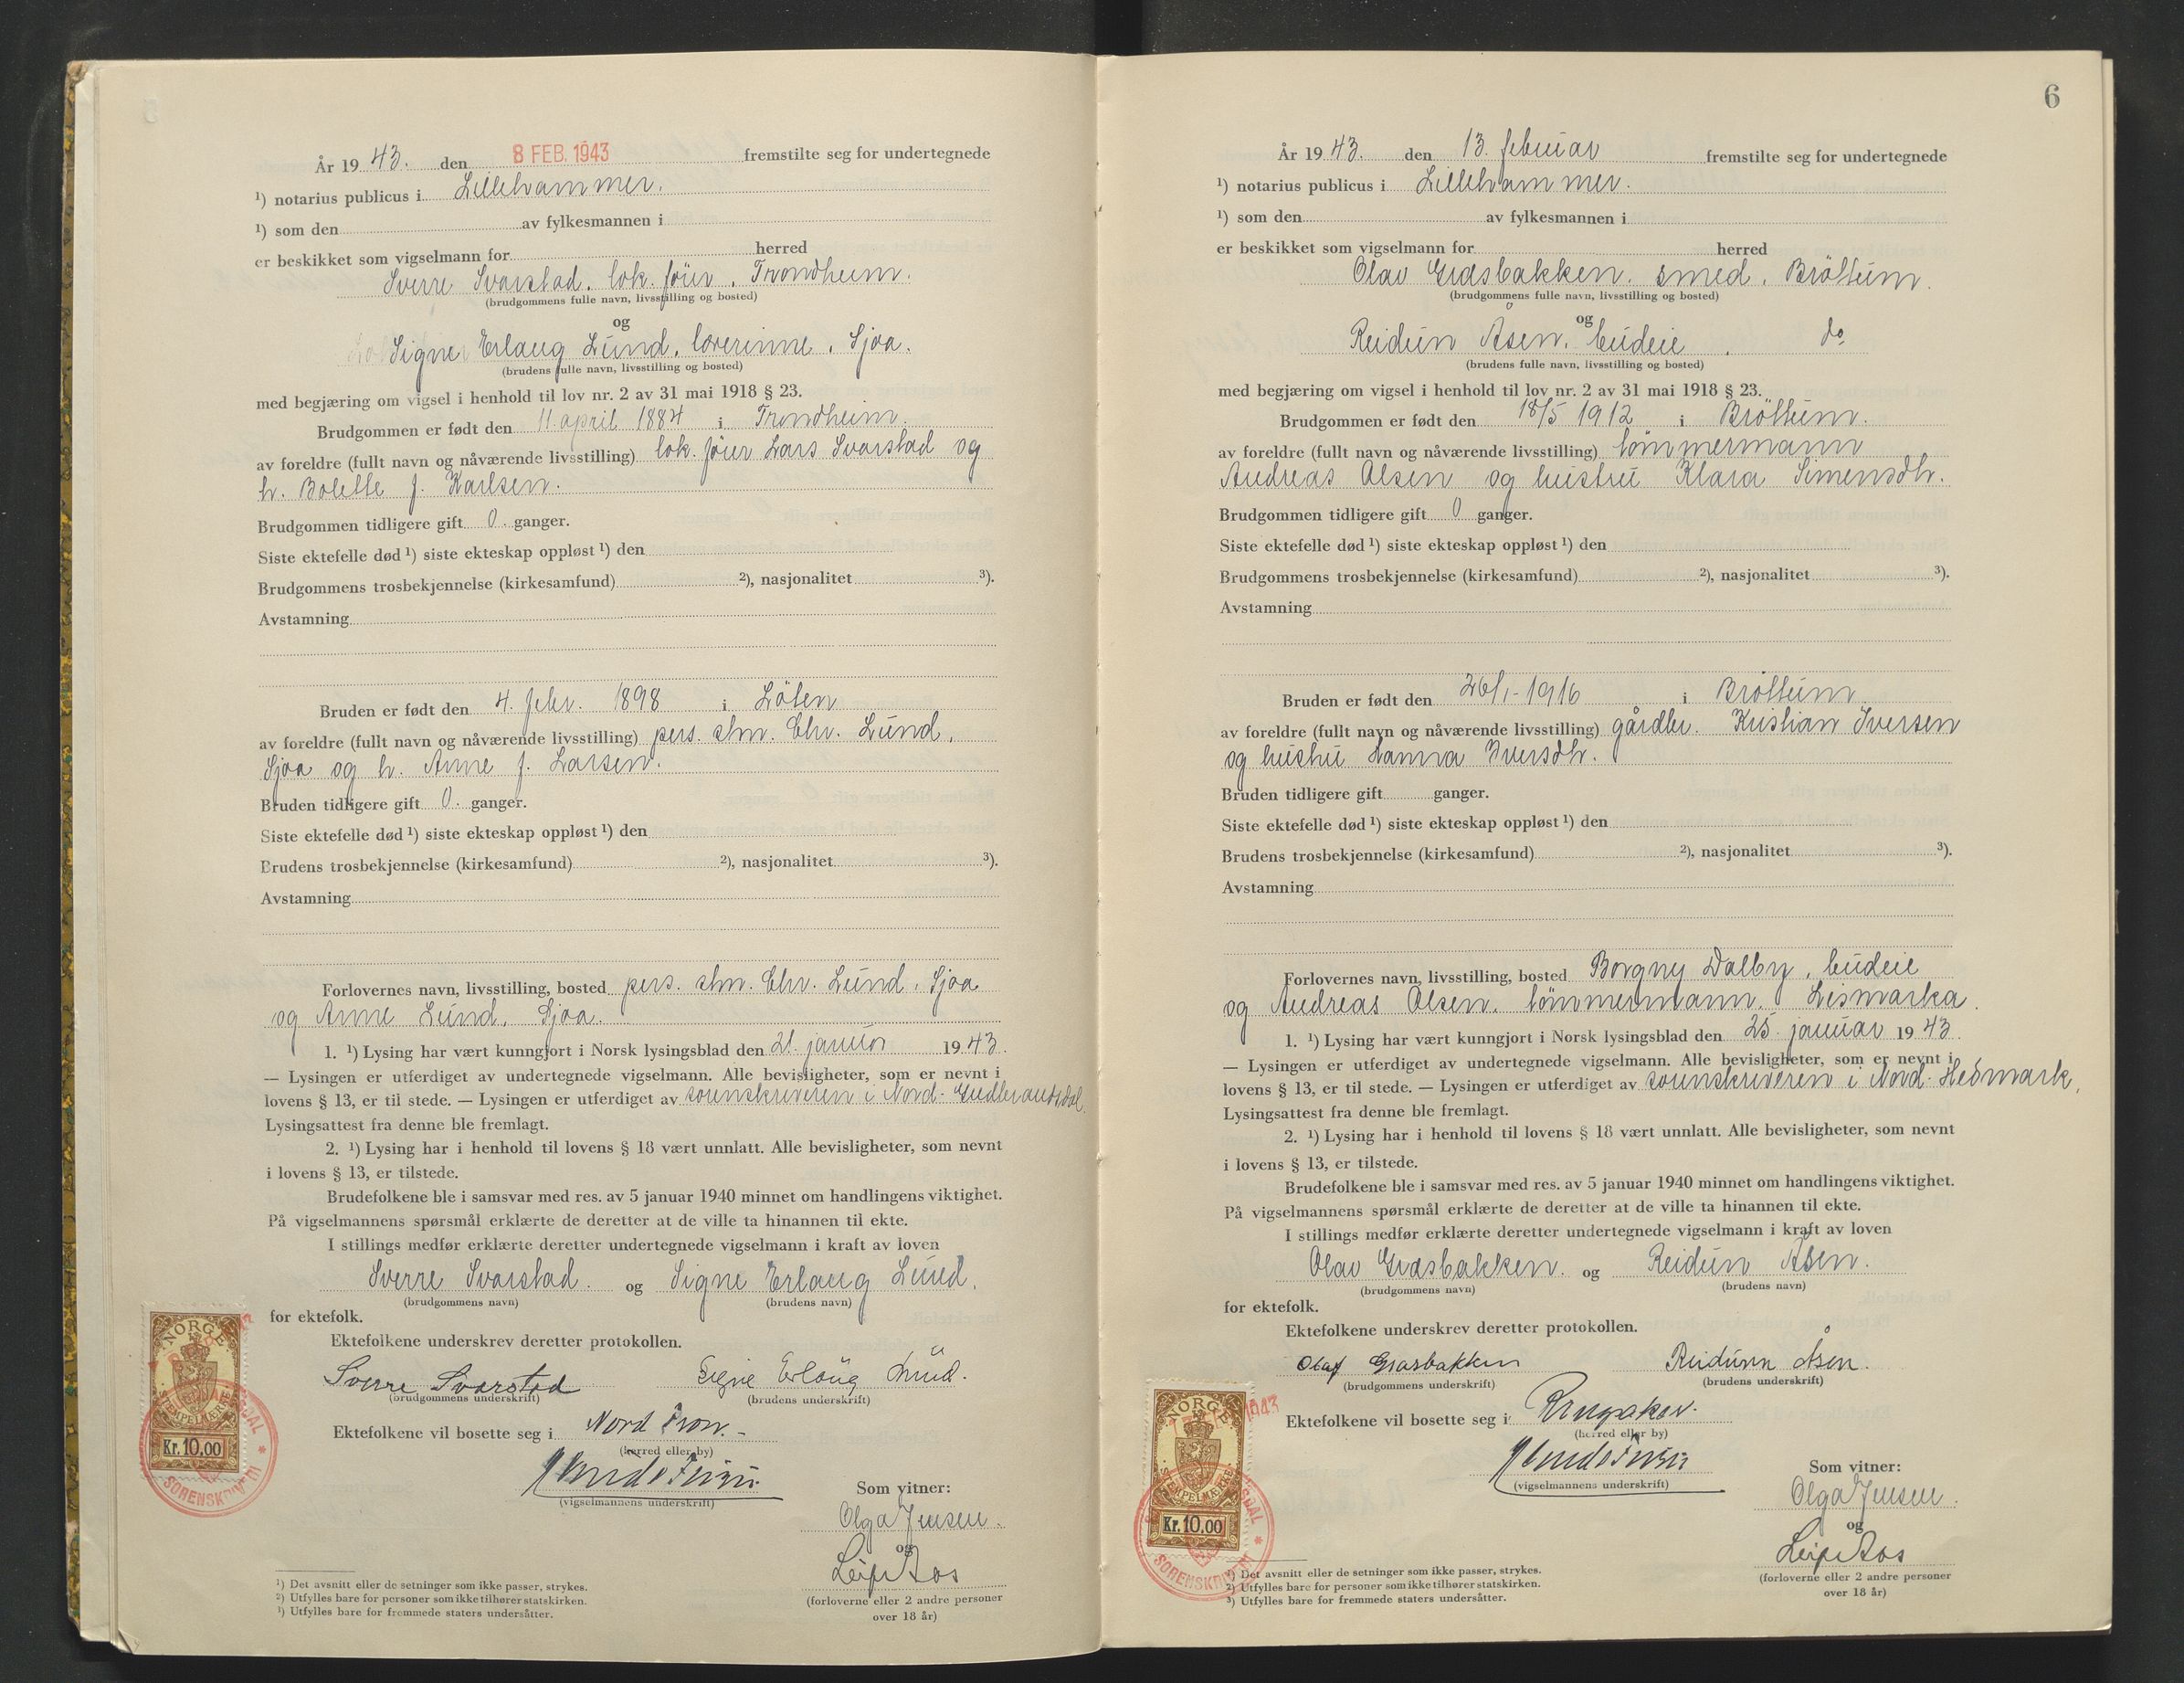 År 19 43. den 8 FEB. 1943 fremstilte seg for undertegnede
¹) notarius publicus i Lillehammer.
¹) som den av fylkesmannen i
er beskikket som vigselmann for herred
Sverre Svarstad, lok. fører, Trondheim.
(brudgommens fulle navn, livsstilling og bosted)
og
Signe Erlaug Lund, lærerinne, Sjoa.
(brudens fulle navn, livsstilling og bosted)
med begjæring om vigsel i henhold til lov nr. 2 av 31 mai 1918 § 23.
Brudgommen er født den 11. april 1884 i Trondheim.
av foreldre (fullt navn og nåværende livsstilling) lok. fører Lars Svarstad og
h. Bolette f. Karlsen.
Brudgommen tidligere gift 0. ganger.
Siste ektefelle død ¹) siste ekteskap oppløst ¹) den
Brudgommens trosbekjennelse (kirkesamfund) ²), nasjonalitet ³).
Avstamning
Bruden er født den 4. febr. 1898 i Löten
av foreldre (fullt navn og nåværende livsstilling) pens. stm. Chr. Lund,
Sjoa og h. Anne f. Larsen.
Bruden tidligere gift 0. ganger.
Siste ektefelle død ¹) siste ekteskap oppløst ¹) den
Brudens trosbekjennelse (kirkesamfund) ²), nasjonalitet ³).
Avstamning
Forlovernes navn, livsstilling, bosted pens. stm. Chr. Lund, Sjoa
og Anne Lund, Sjoa.
1. ¹) Lysing har vært kunngjort i Norsk lysingsblad den 21. januar 19 43.
— Lysingen er utferdiget av undertegnede vigselmann. Alle bevisligheter, som er nevnt i
lovens § 13, er til stede. — Lysingen er utferdiget av sorenskriveren i Nord-Gudbrandsdal.
Lysingsattest fra denne ble fremlagt.
2. ¹) Lysing har i henhold til lovens § 18 vært unnlatt. Alle bevisligheter, som nevnt
i lovens § 13, er tilstede.
Brudefolkene ble i samsvar med res. av 5 januar 1940 minnet om handlingens viktighet.
På vigselmannens spørsmål erklærte de deretter at de ville ta hinannen til ekte.
I stillings medfør erklærte deretter undertegnede vigselmann i kraft av loven
Sverre Svarstad. og Signe Erlaug Lund.
(brudgommens navn) (brudens navn)
for ektefolk.
Ektefolkene underskrev deretter protokollen.
Sverre Svarstad Signe Erlaug Lund.
(brudgommens underskrift) (brudens underskrift)
Ektefolkene vil bosette seg i Nord Fron.-
(herred eller by)
(vigselmannens underskrift)
Som vitner:
Olga Jensen.
og
Leif Aos
(forloverne eller 2 andre personer
over 18 år)
NORGE
STEMPELMERKE
Kr. 10.00
SORENSKRIVEREN
¹) Det avsnitt eller de setninger som ikke passer, strykes.
²) Utfylles bare for personer som ikke tilhører statskirken.
³) Utfylles bare for fremmede staters undersåtter.
6
År 19 43. den 13. februar fremstilte seg for undertegnede
¹) notarius publicus i Lillehammer.
¹) som den av fylkesmannen i
er beskikket som vigselmann for herred
Olav Grasbakken, smed, Bröttum.
(brudgommens fulle navn, livsstilling og bosted)
og
Reidun Åsen, budeie, do
(brudens fulle navn, livsstilling og bosted)
med begjæring om vigsel i henhold til lov nr. 2 av 31 mai 1918 § 23.
Brudgommen er født den 18/5 1912 i Bröttum.
av foreldre (fullt navn og nåværende livsstilling) tömmermann
Andreas Olsen og hustru Klara Simensdtr.
Brudgommen tidligere gift 0 ganger.
Siste ektefelle død ¹) siste ekteskap oppløst ¹) den
Brudgommens trosbekjennelse (kirkesamfund) ²), nasjonalitet ³).
Avstamning
Bruden er født den 26/1-1916 i Bröttum
av foreldre (fullt navn og nåværende livsstilling) gårdbr. Kristian Iversen
og hustru Hanna Iversdtr.
Bruden tidligere gift ganger.
Siste ektefelle død ¹) siste ekteskap oppløst ¹) den
Brudens trosbekjennelse (kirkesamfund) ²), nasjonalitet ³).
Avstamning
Forlovernes navn, livsstilling, bosted Borgny Dalby, budeie
og Andreas Olsen, tömmermann, Lismarka.
1. ¹) Lysing har vært kunngjort i Norsk lysingsblad den 25. januar 19 43.
— Lysingen er utferdiget av undertegnede vigselmann. Alle bevisligheter, som er nevnt i
lovens § 13, er til stede. — Lysingen er utferdiget av sorenskriveren i Nord-Hedmark,
Lysingsattest fra denne ble fremlagt.
2. ¹) Lysing har i henhold til lovens § 18 vært unnlatt. Alle bevisligheter, som nevnt
i lovens § 13, er tilstede.
Brudefolkene ble i samsvar med res. av 5 januar 1940 minnet om handlingens viktighet.
På vigselmannens spørsmål erklærte de deretter at de ville ta hinannen til ekte.
I stillings medfør erklærte deretter undertegnede vigselmann i kraft av loven
Olav Grasbakken. og Reidun Åsen.
(brudgommens navn) (brudens navn)
for ektefolk.
Ektefolkene underskrev deretter protokollen.
Olaf Grasbakken Reidunn Åsen.
(brudgommens underskrift) (brudens underskrift)
Ektefolkene vil bosette seg i Ringsaker.
(herred eller by)
(vigselmannens underskrift)
Som vitner:
Olga Jensen.
og
Leif Aos
(forloverne eller 2 andre personer
over 18 år)
NORGE
STEMPELMERKE
Kr. 10.00
SORENSKRIVEREN
¹) Det avsnitt eller de setninger som ikke passer, strykes.
²) Utfylles bare for personer som ikke tilhører statskirken.
³) Utfylles bare for fremmede staters undersåtter.